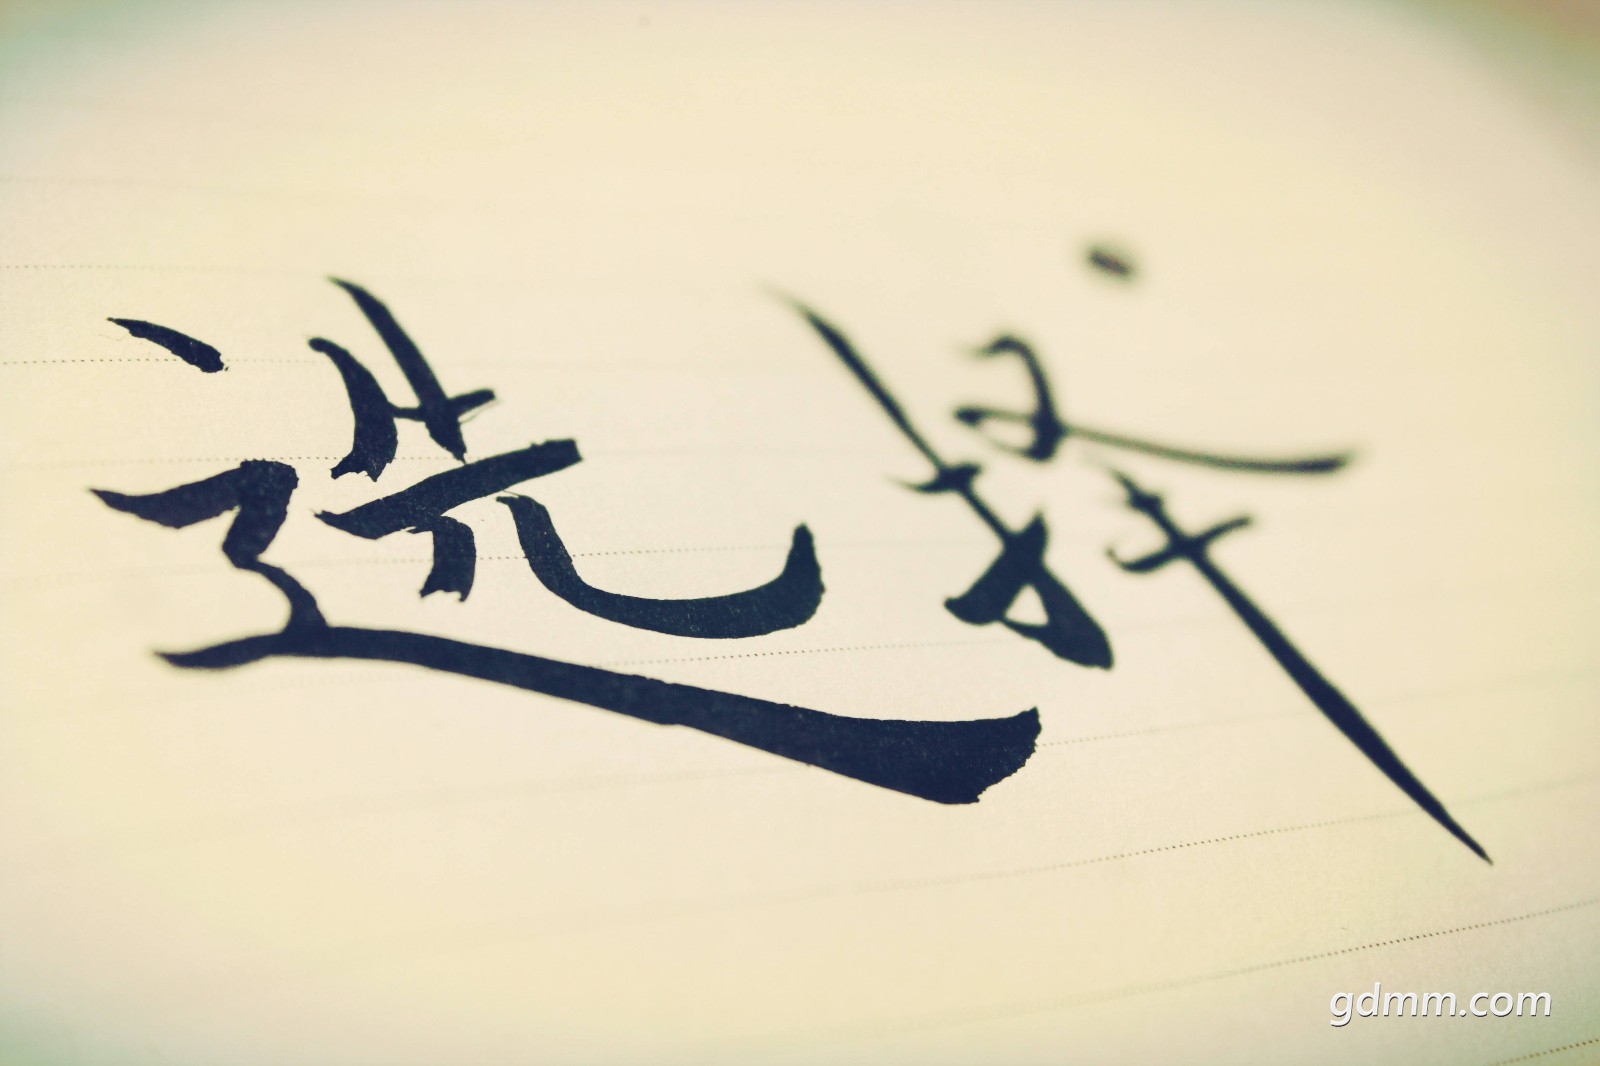 选择
gdmm.com